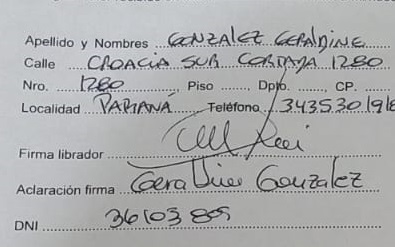 Apellido y Nombres : GONZALEZ GERALDINE
Calle CROACIA SUR CORTADA 1280
Nro. 1280 Piso Dpto. CP.
Localidad PARANÁ Teléfono 343530198
Firma librador
Aclaración firma Geraldine Gonzalez
DNI 36103805